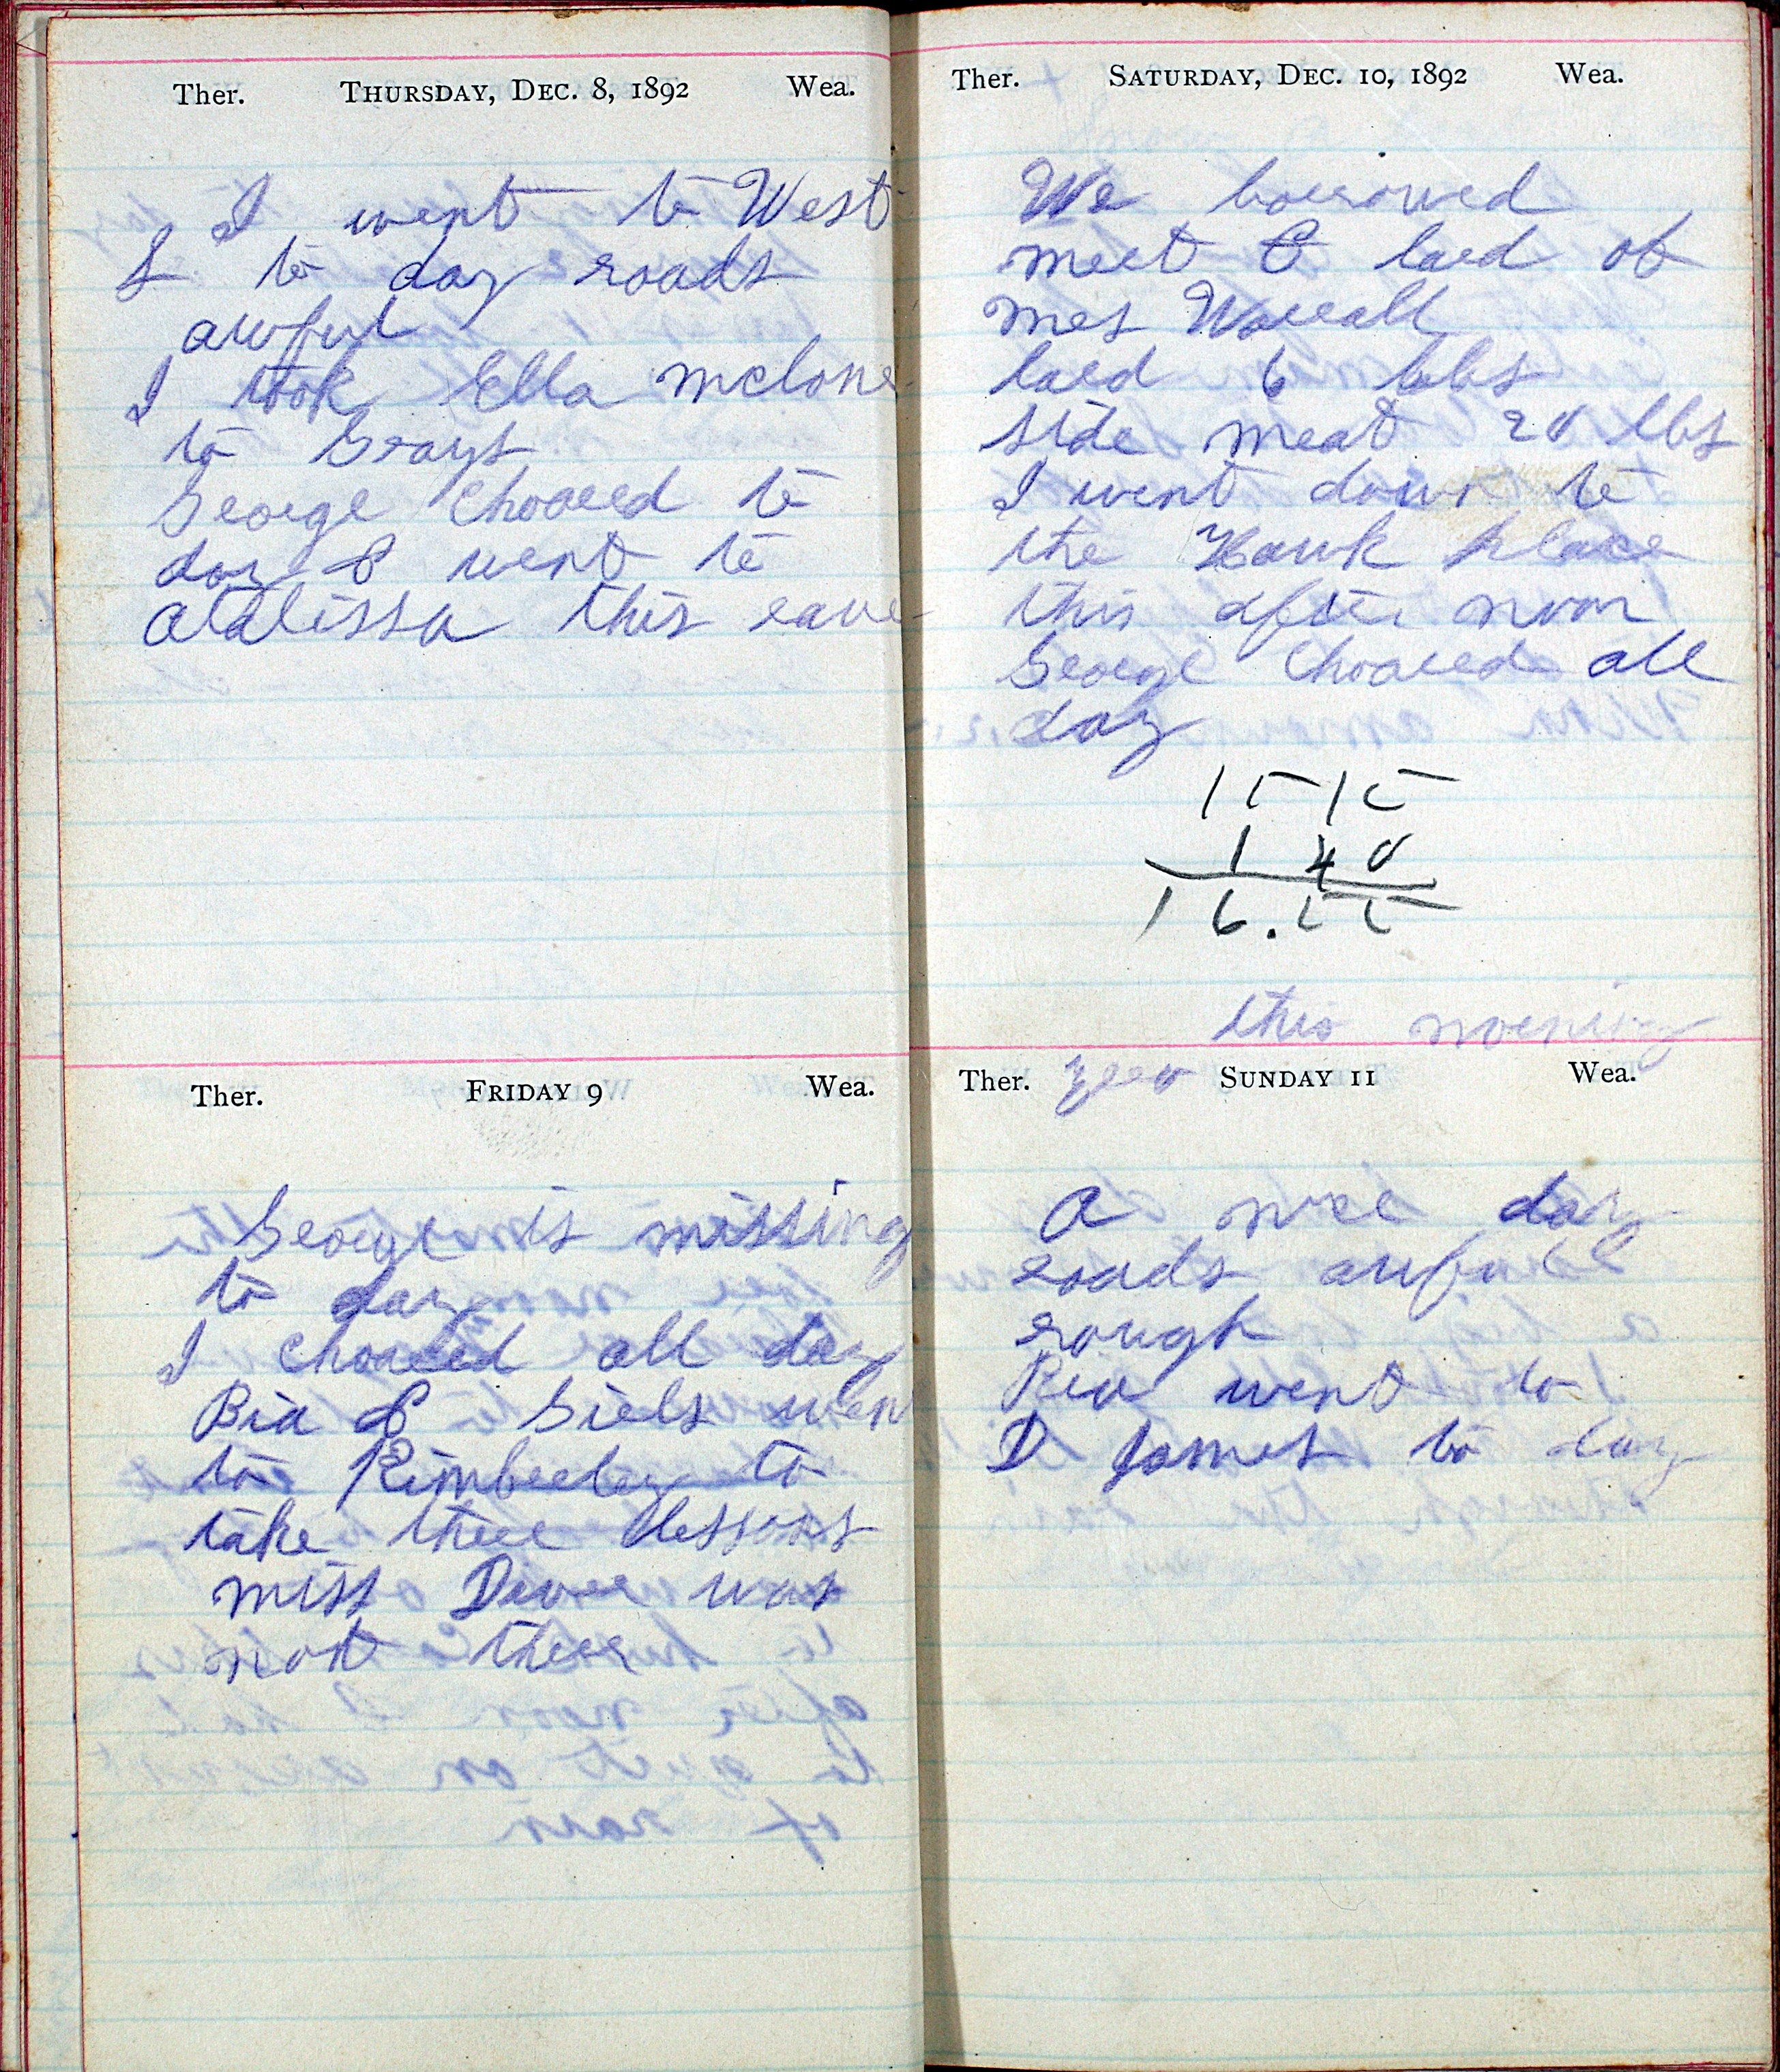 Ther. THURSDAY, DEC. 8, 1892 Wea.
I went to West
L to day roads
awful
I took Ella mclone
to Grays
George Choared to
day & went to
atalissa this eave
Ther. FRIDAY 9 Wea.
George is missing
to day
I choared all day
Bia & Giels wen
to Kimberley to
take thee lessons
miss Dover was
not there
Ther. SATURDAY, DEC. 10, 1892 Wea.
We borrowed
meet & lard of
mrs Worrall
lard 6 lbs
side meat 20 lbs
I went down to
the Hawk place
this after noon
George Choared all
day
15 15
1 40
16.55
this morning
Ther. SUNDAY 11 Wea.
A nice day
roads awful
rough
Rev went to
D James to day